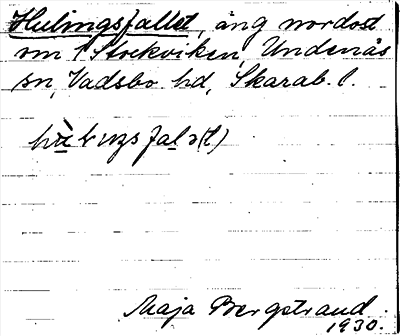 Hulingsfallet, äng nordost
om Stockviken, Undenäs
sn, Vadsbo hd, Skarab. l.
Maja Bergstrand
1930.